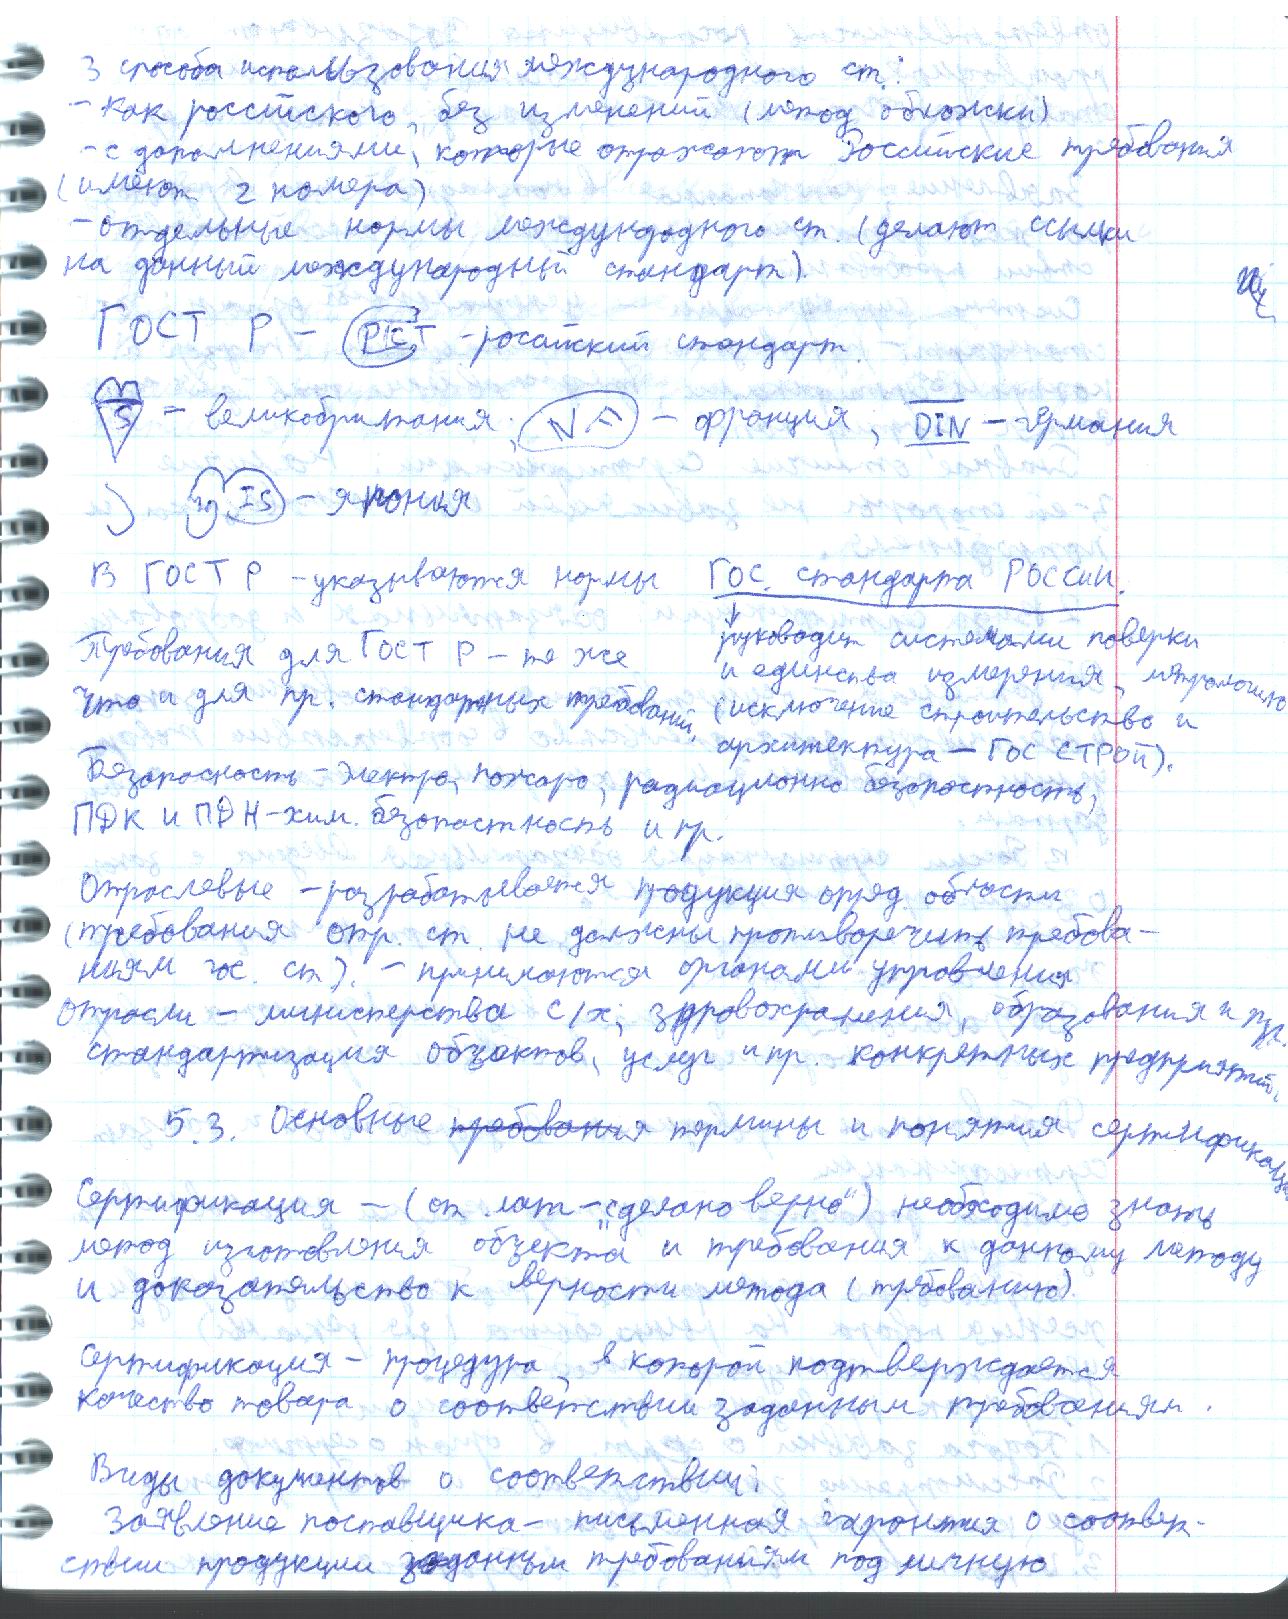 3 способа использования международного ст:
- Как российского, без изменений (метод обложки)
- с дополнениями, которые отражают Российские требования
(имеют 2 номера)
- отдельные нормы международного ст. (делают ссылки
на данный международный стандарт).
ГОСТ Р - РСТ - росийский стандарт.
S - великобритания, NF - франция, DIN - германия
JIS - япония
В ГОСТ Р - указываются нормы Гос. стандарта России.
руководит системами поверки
и единства измерения, метрологию
(исключение строительство и
архитектура - ГОС СТРОЙ).
Требования для ГОСТ Р - те же
что и для пр. стандартных требований.
Безопасность - электро, пожаро, радиационно безопастность,
ПДК и ПДН - хим. безопастность и пр.
Отраслевые - разрабатывается продукция опред. области
(требования отр. ст. не должны противоречить требова-
ниям гос. ст). - принимаются органами управления
отрасли - министерства с/х, здровохранения, образования и пр.
стандартизация объектов, услуг и пр. конкретных предприятий.
5.3. Основные требования термины и понятия сертификации
Сертификация - (от лат - "сделано верно") необходимо знать
метод изготовления объекта и требования к данному методу
и доказательство к верности метода (требованию)
Сертификация - процедура, в которой подтверждается
качество товара о соответствии заданным требованиям.
Виды документов о соответствии:
Заявление поставщика - письменная гарантия о соответ-
ствии продукции заданным требованиям под личную